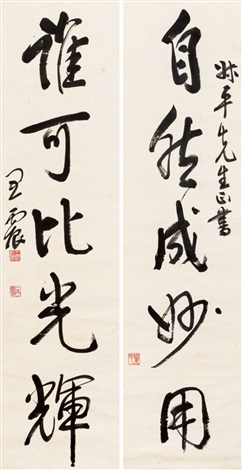 平先生正書
自然成妙用
誰可比光輝
王震